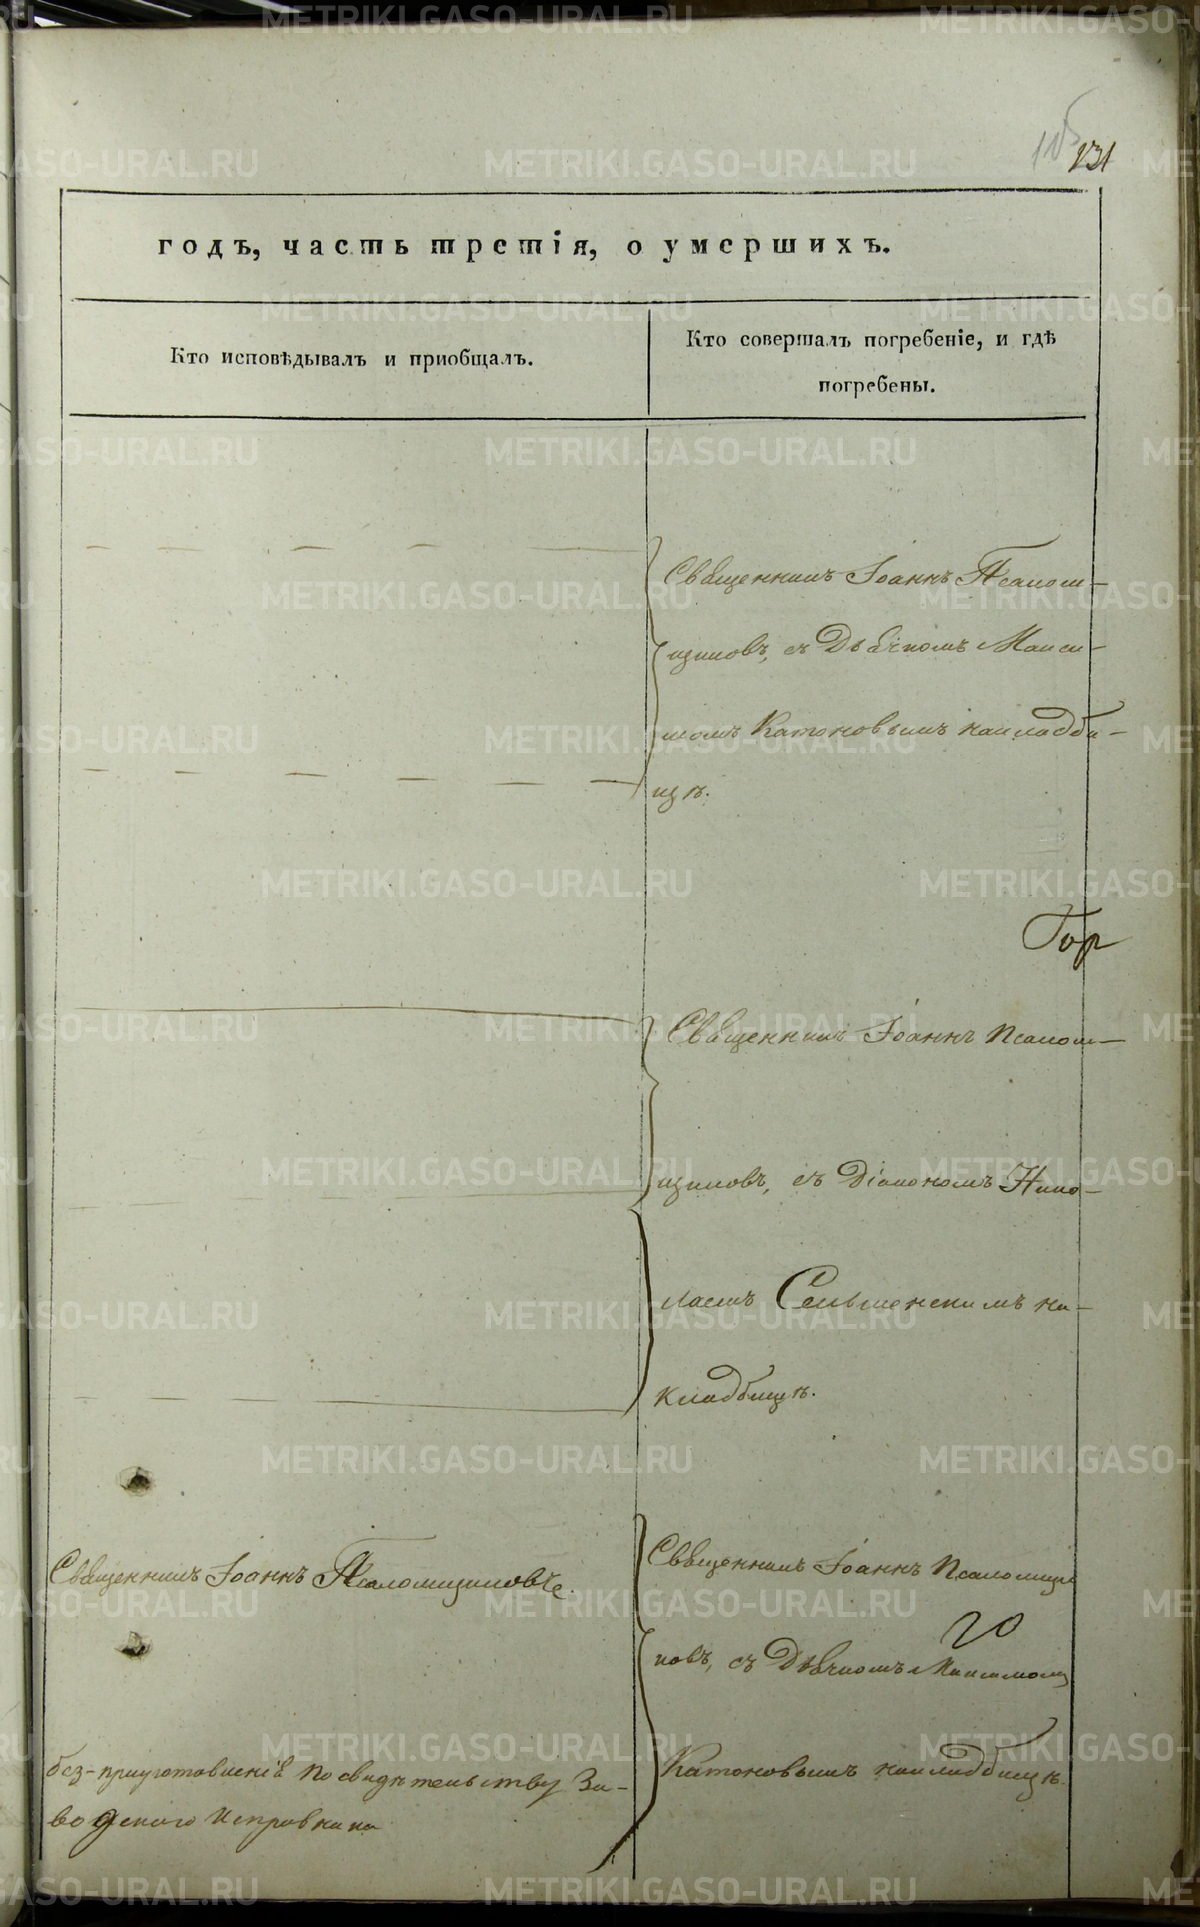 131
годъ, часть третія, о умершихъ.
Кто исповѣдывалъ и пріобщалъ.
Кто совершалъ погребеніе, и гдѣ
погребены.
Священникъ Іоаннъ Псалом-
щиковъ, съ Дьячкомъ Макси-
момъ Катоновымъ накладби-
щѣ.
Гор
Священникъ Іоаннъ Псалом-
щиковъ, съ Діакономъ Нико-
лаемъ Сельменскимъ на-
кладбищѣ.
Священникъ Іоаннъ Псаломщиковъ.
без-приуготовленія по свидѣтельству За-
водскаго Исправника
Священникъ Іоаннъ Псаломщи
ковъ, съ Дьячкомъ Максимомъ
Катоновымъ накладбищѣ.
METRIKI.GASO-URAL.RU